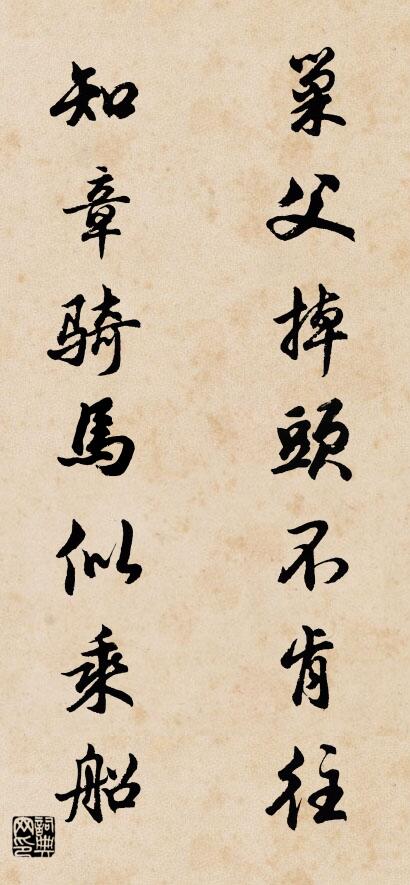 巢父掉頭不肯往
知章騎馬似乘船
詞典网印